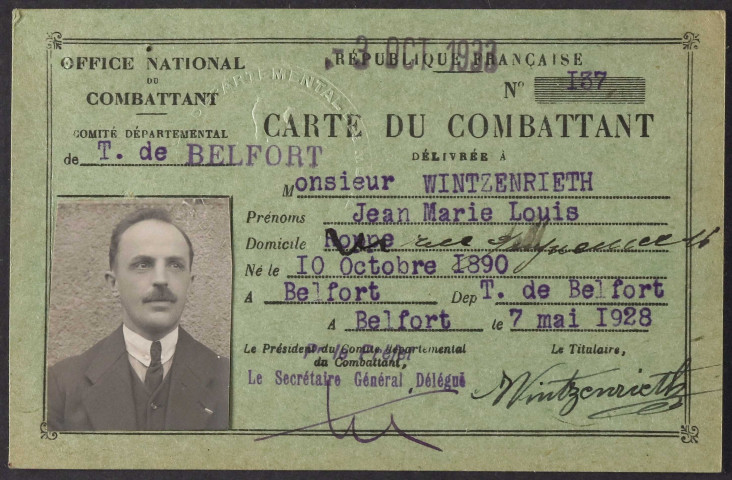 - 3 OCT. 1933
OFFICE NATIONAL
DU
COMBATTANT
COMITÉ DÉPARTEMENTAL
de T. de BELFORT
RÉPUBLIQUE FRANÇAISE
N° I37
CARTE DU COMBATTANT
DÉLIVRÉE À
Monsieur WINTZENRIETH
Prénoms Jean Marie Louis
Domicile Roppe rue
Né le IO Octobre I890
A Belfort Dep T. de Belfort
A Belfort le 7 mai I928
Le Président du Comité départemental
du Combattant,
Le Titulaire,
Le Secrétaire Général Délégué
Wintzenrieth